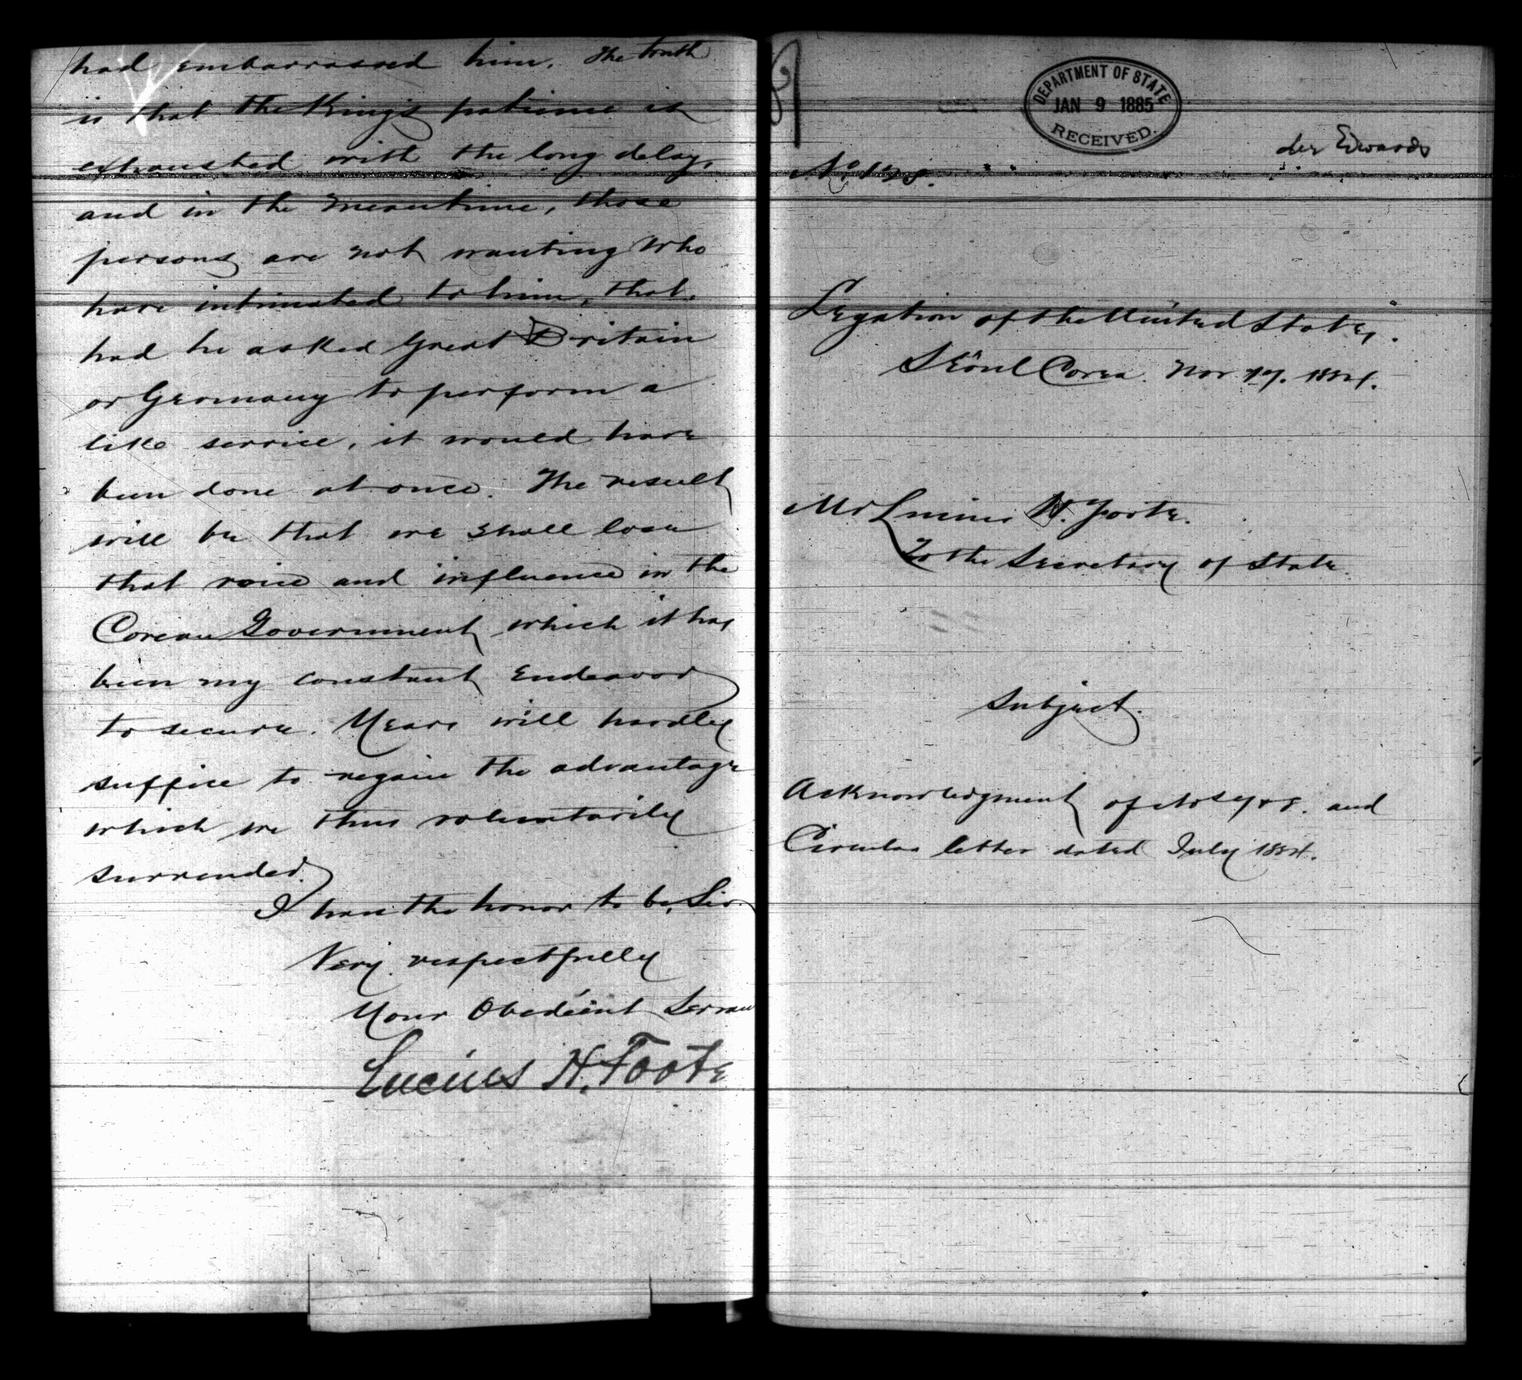 had embarrassed him. The truth
is that the King's patience is
exhausted with the long delay,
and in the meantime, those
persons are not wanting who
have intimated to him, that
had he asked Great Britain
or Germany to perform a
like service, it would have
been done at once. The result
will be that we shall lose
that voice and influence in the
Corean Government which it has
been my constant endeavor
to secure. Years will hardly
suffice to regain the advantage
which we thus voluntarily
surrended.
I have the honor to be, Sir
Very respectfully
Your Obedient Servan
Lucius H. Foote
DEPARTMENT OF STATE
JAN 9 1885
RECEIVED.
Edwards
No.
Legation of the United States,
Sëoul Corea. Nov 1884.
Mr Lucius H. Foote.
To the Secretary of State
Subject.
Acknowledgment of and
Circular letter dated July 1884.